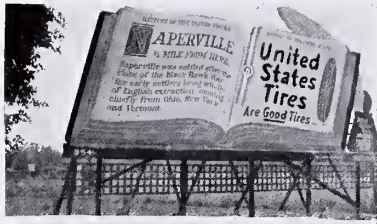 HISTORY OF THE UNITED STATES
NAPERVILLE
½ MILE FROM HERE.
Naperville was settled after the
close of the Black Hawk War
the early settlers being
of English extraction coming
chiefly from Ohio, New York
and Vermont.
United
States
Tires
Are Good Tires